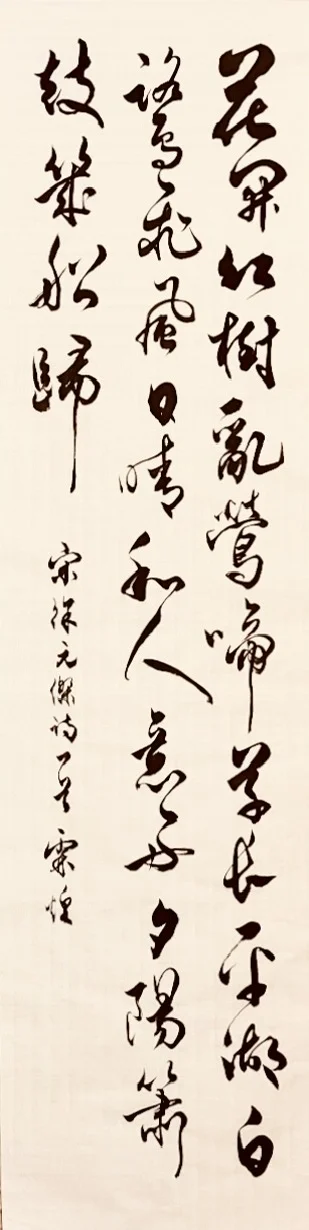 花開紅樹亂鶯啼草長平湖白
鷺飛風日晴和人意好夕陽簫
鼓幾船歸
宋徐元傑詩一首